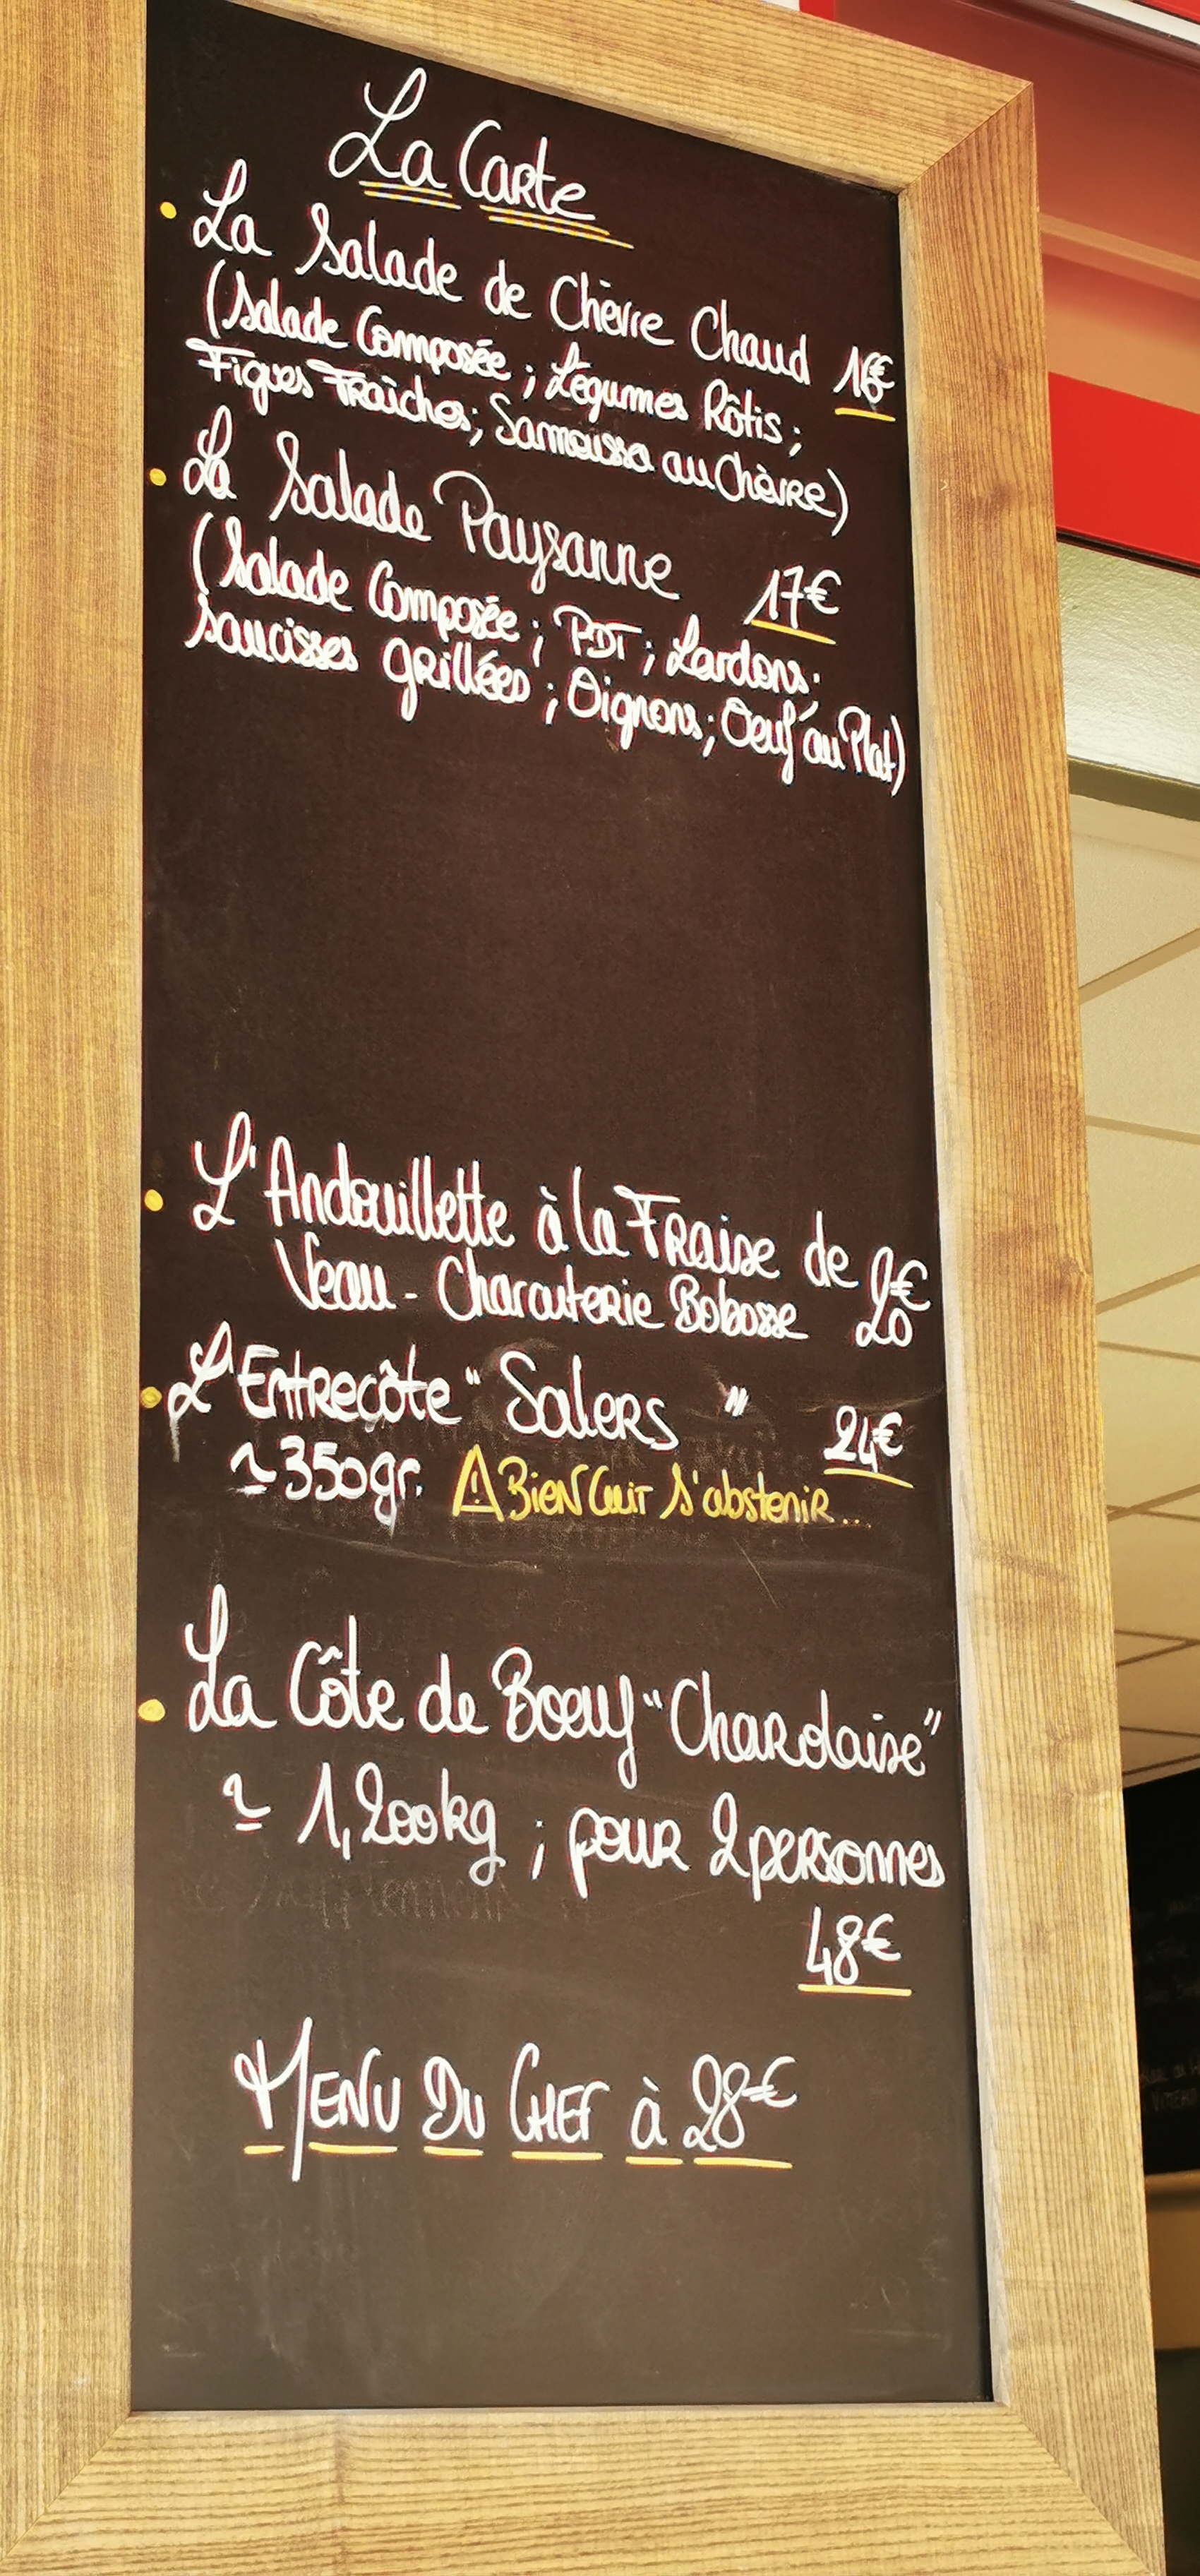 La Carte
La Salade de Chèvre Chaud 16€
(Salade Composée ; Légumes Rôtis ;
Figues Fraîches ; Samoussa au Chèvre)
La Salade Paysanne 17€
(Salade Composée ; PDT ; Lardons ;
saucisses grillées ; Oignons ; Oeuf au Plat)
L'Andouillette à la Fraise de
Veau - Charcuterie Bobosse 20€
L'Entrecôte "Salers" 24€
≃ 350gr. ⚠ Bien Cuit s'abstenir...
La Côte de Boeuf "Charolaise"
≃ 1,200kg ; pour 2 personnes
48€
MENU DU CHEF à 28€